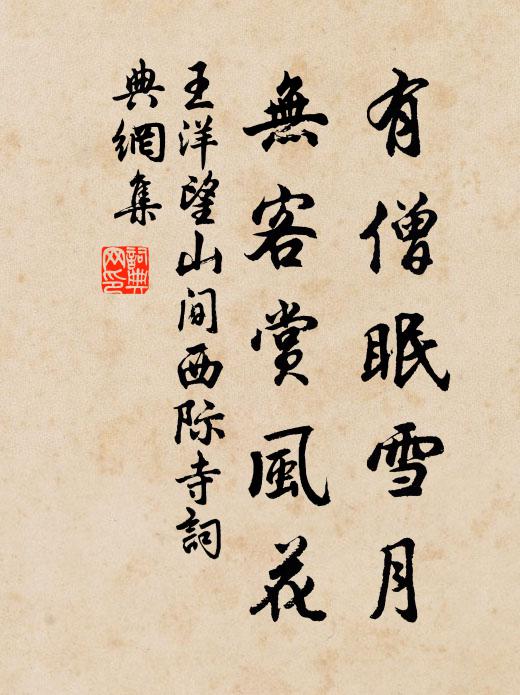 有僧眠雪月
無客賞風花
王洋望山间西际寺詞
典網集
詞典
网印